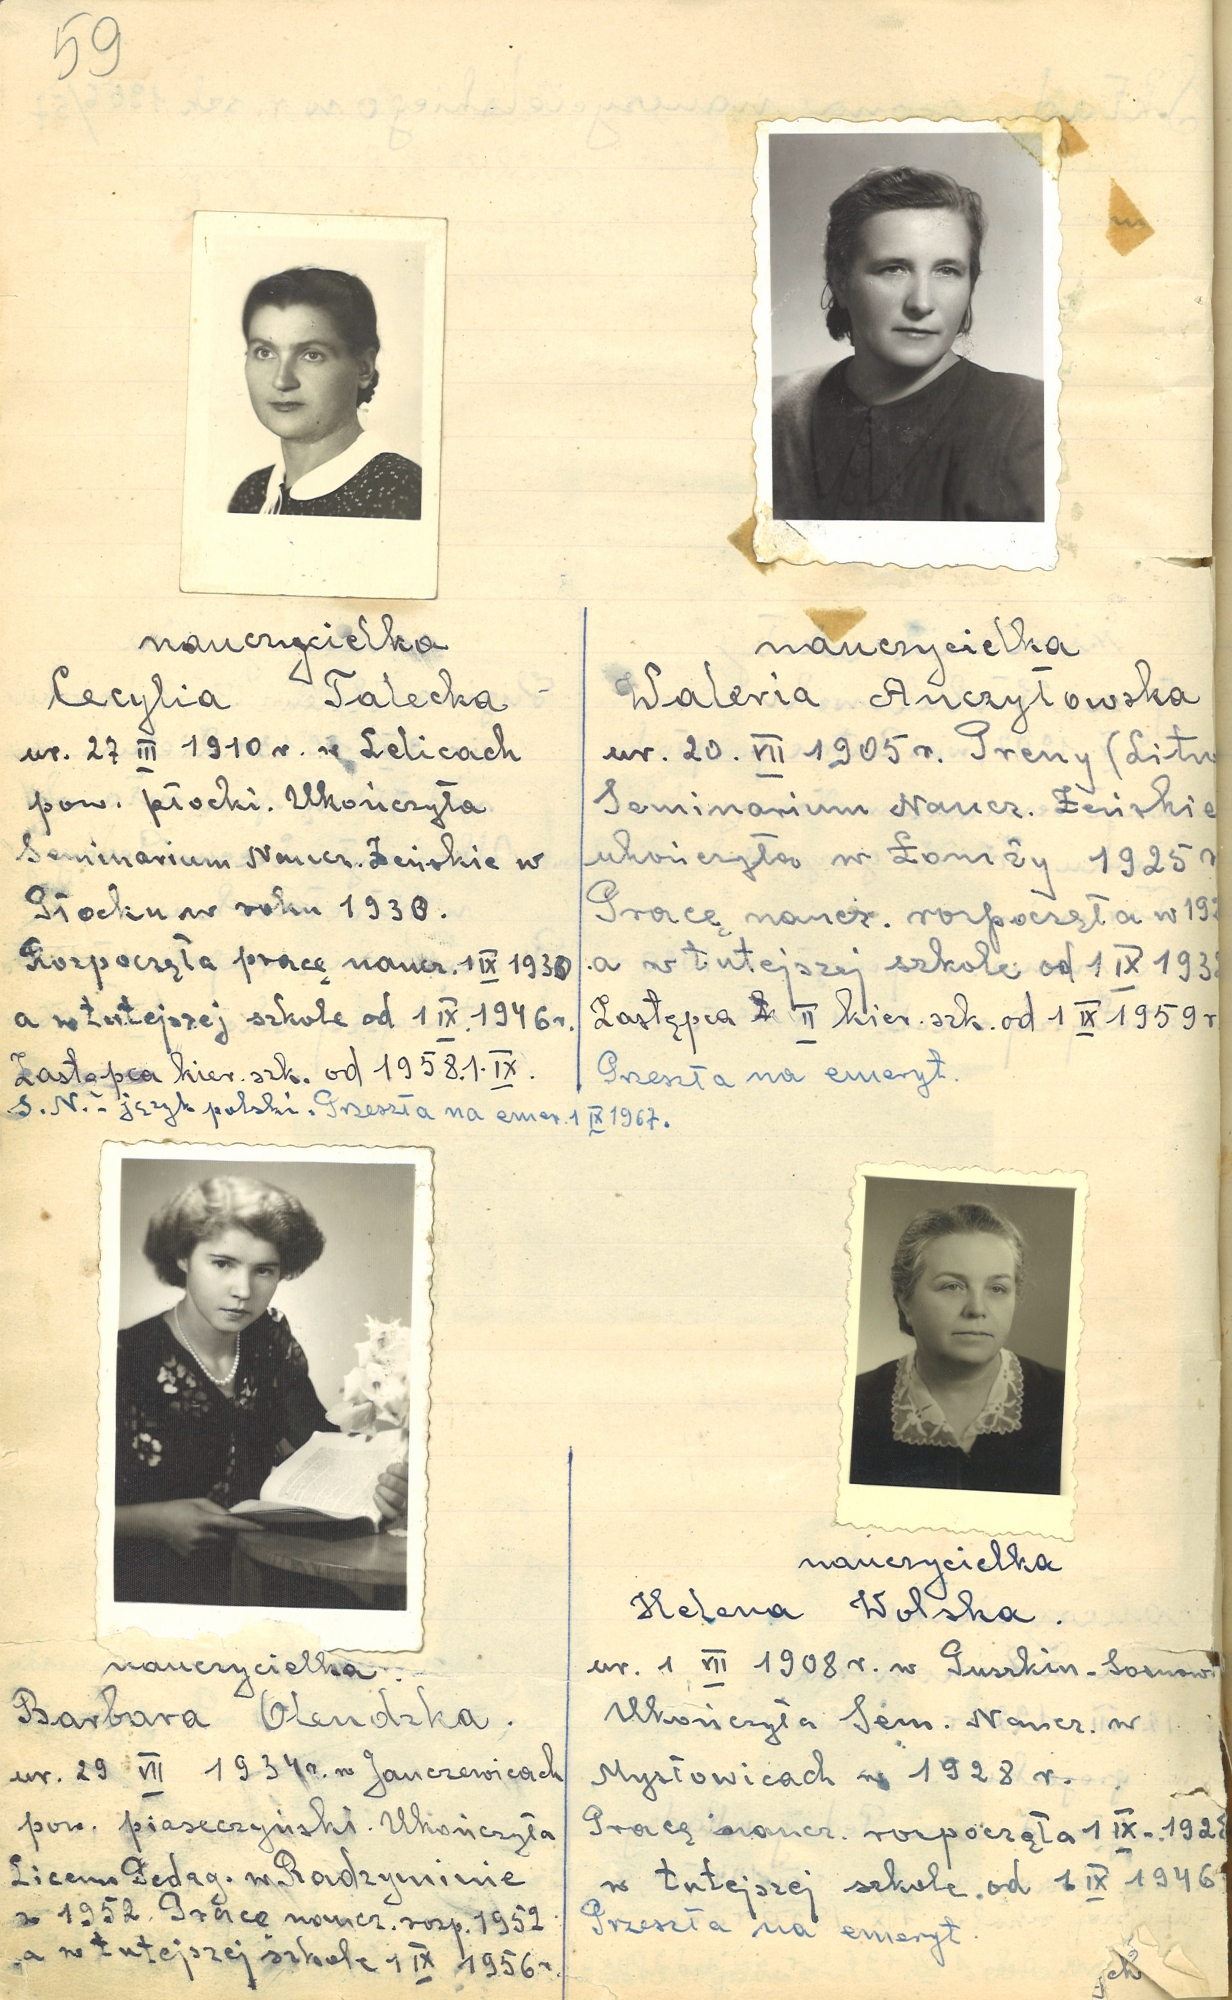 59
nauczycielka
Cecylia Talecka
ur. 27 III 1910 r. w Lelicach
pow. płocki. Ukończyła
Seminarium Naucz. Żeńskie w
Płocku w roku 1930.
Rozpoczęła pracę naucz. 1 IX 1930
a w tutejszej szkole od 1 IX. 1946 r.
Zastępca kier. szk. od 1958.1.IX.
S.N. - język polski. Przeszła na emer. 1 IX 1967.
nauczycielka
Waleria Anczyłowska
ur. 20. VII 1905 r. Preny (Litw
Seminarium Naucz. Żeńskie
ukończyła w Łomży 1925 r
Pracę naucz. rozpoczęła w 192
a w tutejszej szkole od 1 IX 193
Zastępca II kier. szk. od 1 IX 1959 r
Przeszła na emeryt.
nauczycielka
Barbara Olendzka.
ur. 29 VII 1934 r. w Janczewicach
pow. piaseczyński. Ukończyła
Liceum Pedag. w Radzyminie
w 1952. Pracę naucz. rozp. 1952
a w tutejszej szkole 1 IX 1956 r.
nauczycielka
Helena Wolska.
ur. 1 VII 1908 r. w
Ukończyła Sem. Naucz. w
Mysłowicach w 1928 r.
Pracę naucz. rozpoczęła 1 IX. 1928
w tutejszej szkole od 1 IX 1946
Przeszła na emeryt.